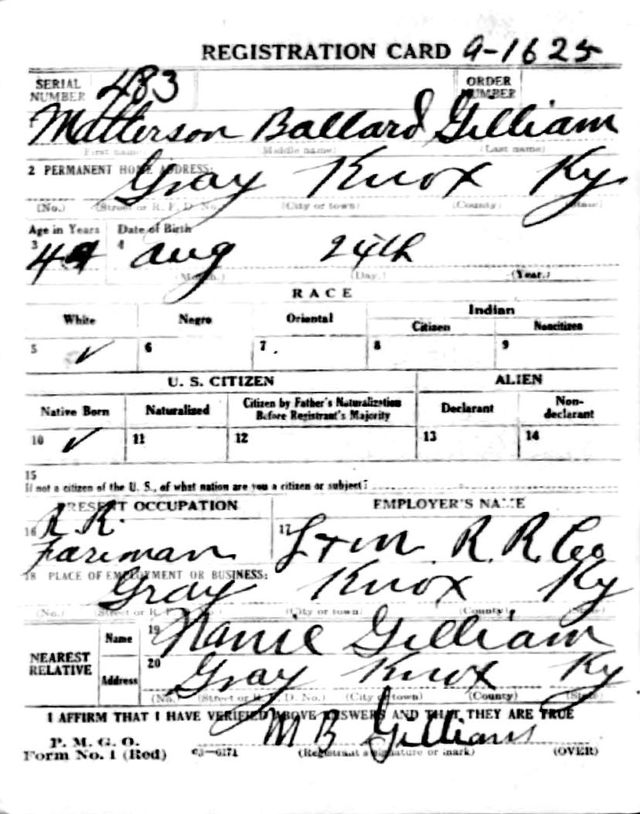 REGISTRATION CARD A-1625
SERIAL NUMBER 483 ORDER NUMBER
1 Matterson Ballard Gilliam
First name (Middle name) (Last name)
2 PERMANENT HOME ADDRESS:
Gray Knox Ky
(No.) (Street or R. F. D. No.) (City or town) (County) (State)
Age in Years Date of Birth
3 4
44 Aug 24th
(Month.) (Day.) (Year.)
RACE
White Negro Oriental Indian
Citizen Noncitizen
5 ✓ 6 7 8 9
U. S. CITIZEN ALIEN
Native Born Naturalized Citizen by Father's Naturalization Before Registrant's Majority Declarant Non-declarant
10 ✓ 11 12 13 14
15
If not a citizen of the U. S., of what nation are you a citizen or subject?
PRESENT OCCUPATION EMPLOYER'S NAME
16 R.R. 17
L+N R. R. Co
18 PLACE OF EMPLOYMENT OR BUSINESS:
Gray Knox Ky
(No.) (Street or R. F. D. No.) (City or town) (County) (State)
NEAREST RELATIVE Name 19 Nanie Gilliam
Address 20 Gray Knox Ky
(No.) (Street or R. F. D. No.) (City or town) (County) (State)
I AFFIRM THAT I HAVE VERIFIED ABOVE ANSWERS AND THAT THEY ARE TRUE
M B Gilliam
P. M. G. O.
Form No. 1 (Red) c3—6171 (Registrant's signature or mark) (OVER)